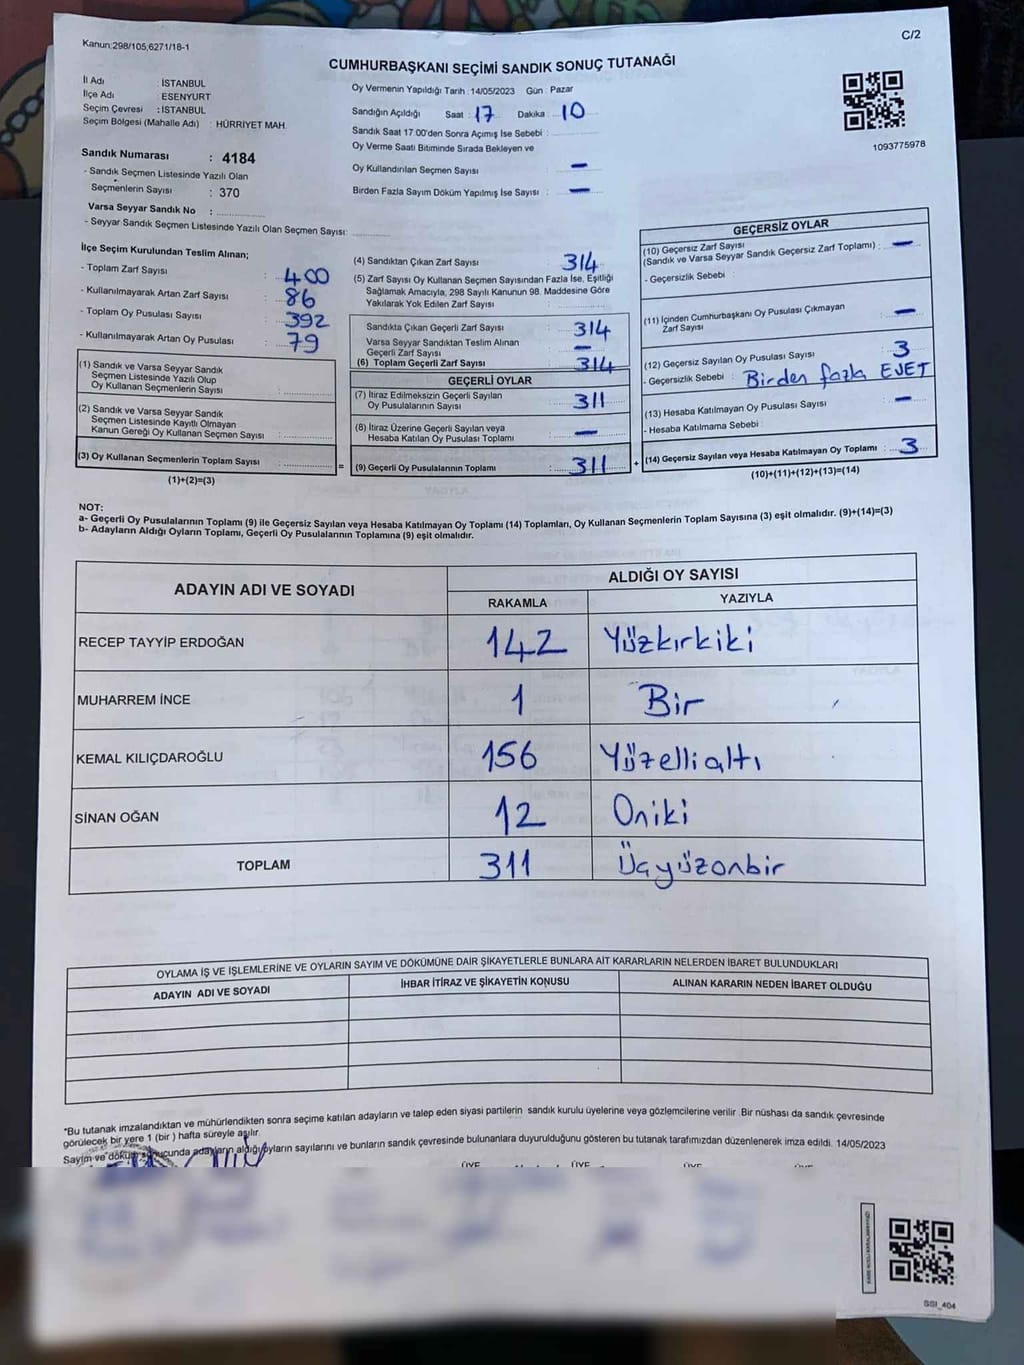 Kanun:298/105,6271/18-1
C/2
CUMHURBAŞKANI SEÇİMİ SANDIK SONUÇ TUTANAĞI
İl Adı : İSTANBUL
İlçe Adı : ESENYURT
Seçim Çevresi : İSTANBUL
Seçim Bölgesi (Mahalle Adı) : HÜRRİYET MAH.
Sandık Numarası : 4184
- Sandık Seçmen Listesinde Yazılı Olan
Seçmenlerin Sayısı : 370
Varsa Seyyar Sandık No :
- Seyyar Sandık Seçmen Listesinde Yazılı Olan Seçmen Sayısı:
Oy Vermenin Yapıldığı Tarih : 14/05/2023 Gün : Pazar
Sandığın Açıldığı Saat : 17 Dakika : 10
Sandık Saat 17:00'den Sonra Açımış İse Sebebi :
Oy Verme Saati Bitiminde Sırada Bekleyen ve
Oy Kullandırılan Seçmen Sayısı : –
Birden Fazla Sayım Döküm Yapılmış İse Sayısı : –
1093775978
İlçe Seçim Kurulundan Teslim Alınan;
- Toplam Zarf Sayısı : 400
- Kullanılmayarak Artan Zarf Sayısı : 86
- Toplam Oy Pusulası Sayısı : 392
- Kullanılmayarak Artan Oy Pusulası : 79
(1) Sandık ve Varsa Seyyar Sandık
Seçmen Listesinde Yazılı Olup
Oy Kullanan Seçmenlerin Sayısı :
(2) Sandık ve Varsa Seyyar Sandık
Seçmen Listesinde Kayıtlı Olmayan
Kanun Gereği Oy Kullanan Seçmen Sayısı :
(3) Oy Kullanan Seçmenlerin Toplam Sayısı :
(1)+(2)=(3)
=
(4) Sandıktan Çıkan Zarf Sayısı : 314
(5) Zarf Sayısı Oy Kullanan Seçmen Sayısından Fazla İse, Eşitliği
Sağlamak Amacıyla, 298 Sayılı Kanunun 98. Maddesine Göre
Yakılarak Yok Edilen Zarf Sayısı :
Sandıkta Çıkan Geçerli Zarf Sayısı : 314
Varsa Seyyar Sandıktan Teslim Alınan
Geçerli Zarf Sayısı : –
(6) Toplam Geçerli Zarf Sayısı : 314
GEÇERLİ OYLAR
(7) İtiraz Edilmeksizin Geçerli Sayılan
Oy Pusulalarının Sayısı : 311
(8) İtiraz Üzerine Geçerli Sayılan veya
Hesaba Katılan Oy Pusulası Toplamı : –
(9) Geçerli Oy Pusulalarının Toplamı : 311
+
GEÇERSİZ OYLAR
(10) Geçersiz Zarf Sayısı
(Sandık ve Varsa Seyyar Sandık Geçersiz Zarf Toplamı) : –
- Geçersizlik Sebebi :
(11) İçinden Cumhurbaşkanı Oy Pusulası Çıkmayan
Zarf Sayısı : –
(12) Geçersiz Sayılan Oy Pusulası Sayısı : 3
- Geçersizlik Sebebi : Birden fazla EVET
(13) Hesaba Katılmayan Oy Pusulası Sayısı : –
- Hesaba Katılmama Sebebi :
(14) Geçersiz Sayılan veya Hesaba Katılmayan Oy Toplamı : 3
(10)+(11)+(12)+(13)=(14)
NOT:
a- Geçerli Oy Pusulalarının Toplamı (9) ile Geçersiz Sayılan veya Hesaba Katılmayan Oy Toplamı (14) Toplamları, Oy Kullanan Seçmenlerin Toplam Sayısına (3) eşit olmalıdır. (9)+(14)=(3)
b- Adayların Aldığı Oyların Toplamı, Geçerli Oy Pusulalarının Toplamına (9) eşit olmalıdır.
ADAYIN ADI VE SOYADI ALDIĞI OY SAYISI
RAKAMLA YAZIYLA
RECEP TAYYİP ERDOĞAN 142 Yüzkırkiki
MUHARREM İNCE 1 Bir
KEMAL KILIÇDAROĞLU 156 Yüzellialtı
SİNAN OĞAN 12 Oniki
TOPLAM 311 Üçyüzonbir
OYLAMA İŞ VE İŞLEMLERİNE VE OYLARIN SAYIM VE DÖKÜMÜNE DAİR ŞİKAYETLERLE BUNLARA AİT KARARLARIN NELERDEN İBARET BULUNDUKLARI
ADAYIN ADI VE SOYADI İHBAR İTİRAZ VE ŞİKAYETİN KONUSU ALINAN KARARIN NEDEN İBARET OLDUĞU
*Bu tutanak imzalandıktan ve mühürlendikten sonra seçime katılan adayların ve talep eden siyasi partilerin sandık kurulu üyelerine veya gözlemcilerine verilir. Bir nüshası da sandık çevresinde
görülecek bir yere 1 (bir ) hafta süreyle aşılır.
Sayım ve döküm sonucunda adayların aldığı oyların sayılarını ve bunların sandık çevresinde bulunanlara duyurulduğunu gösteren bu tutanak tarafımızdan düzenlenerek imza edildi. 14/05/2023
ÜYE ÜYE ÜYE ÜYE
SSI_404